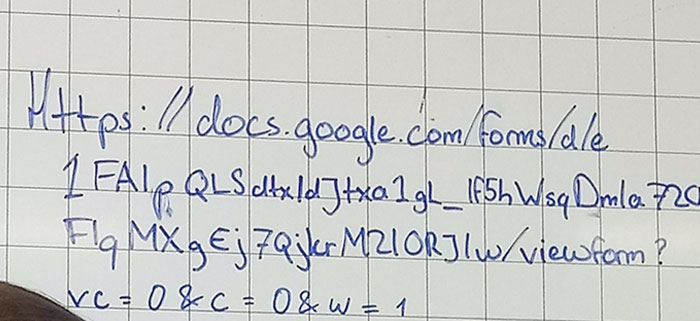 Https://docs.google.com/forms/d/e
1FAIpQLSdtxldJtxa1gL_lF5hWsqDmla720
FlqMXgEj7QjkrM2lORJlw/viewform?
vc=0&c=0&w=1